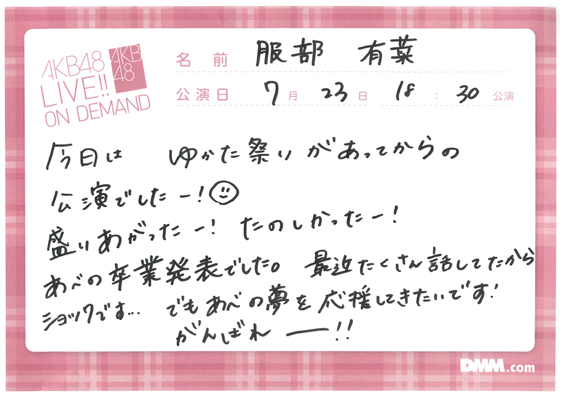 AKB48
LIVE!!
ON DEMAND
AKB
48
名前 服部 有菜
公演日 7月 23日 18:30公演
今日は ゆかた祭りがあってからの
公演でしたー!
盛りあがったー! たのしかったー!
あべの卒業発表でした。 最近たくさん話してたから
ショックです... でもあべの夢を応援してきたいです!
がんばれ ー!!
DMM.com